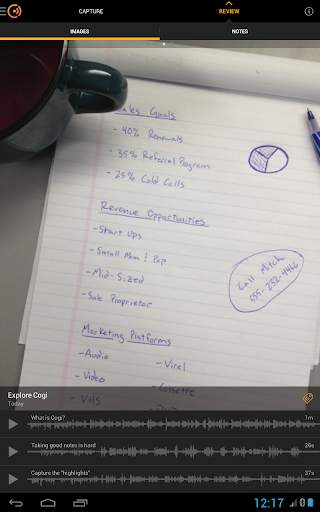 CAPTURE
REVIEW
IMAGES
NOTES
Sales Goals
- 40% Renewals
- 35% Referral Program
- 25% Cold Calls
Revenue Opportunities
- Start Ups
- Small Mom ! Pop
- Mid-Sized
- Sole Proprietor
Call Mitch
555-232-4466
Marketing Platforms
- Audio
- Viral
- Video
- Cassette
- VHS
Explore Cogi
Today
What is Cogi?
1m
Taking good notes is hard
26s
Capture the "highlights"
37s
12:17